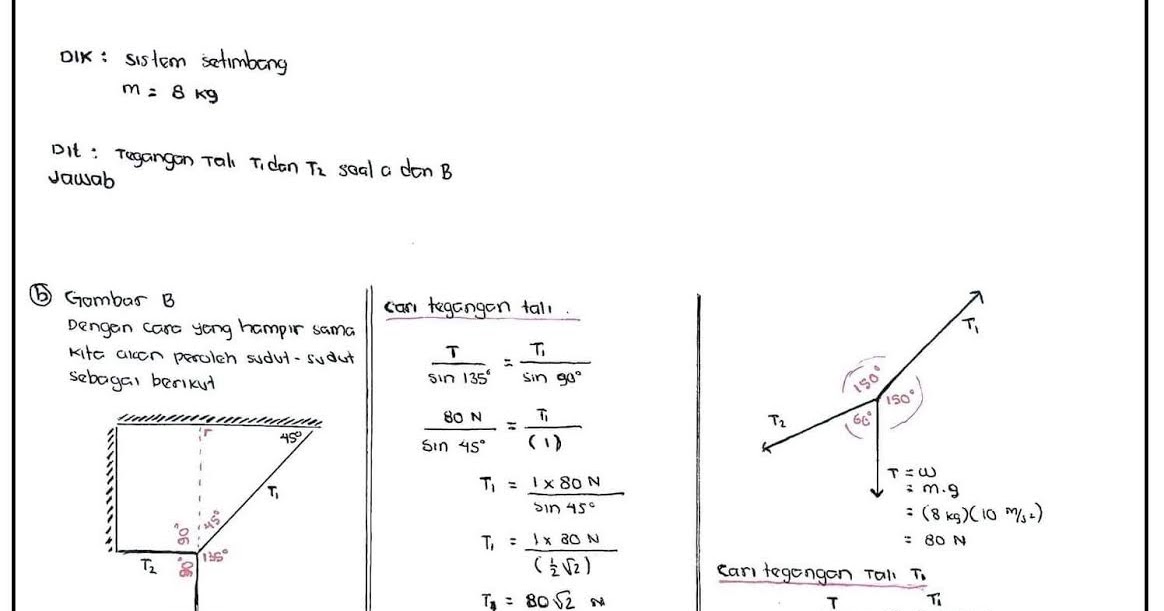 DIK : sistem setimbang
m = 8 kg
Dit : Tegangan Tali T₁ dan T₂ soal a dan B
Jawab
ⓑ Gambar B
Dengan cara yang hampir sama
kita akan peroleh sudut-sudut
sebagai berikut
r
45°
T₁
90°
45°
T₂
90°
135°
Cari tegangan tali .
T / sin 135° = T₁ / sin 90°
80 N / Sin 45° = T₁ / (1)
T₁ = 1 x 80 N / sin 45°
T₁ = 1 x 80 N / (½√2)
T₁ = 80√2 N
T₁
150°
150°
T₂
60°
T = w
= m.g
= (8 kg)(10 m/s²)
= 80 N
Cari tegangan Tali T₁
T T₁